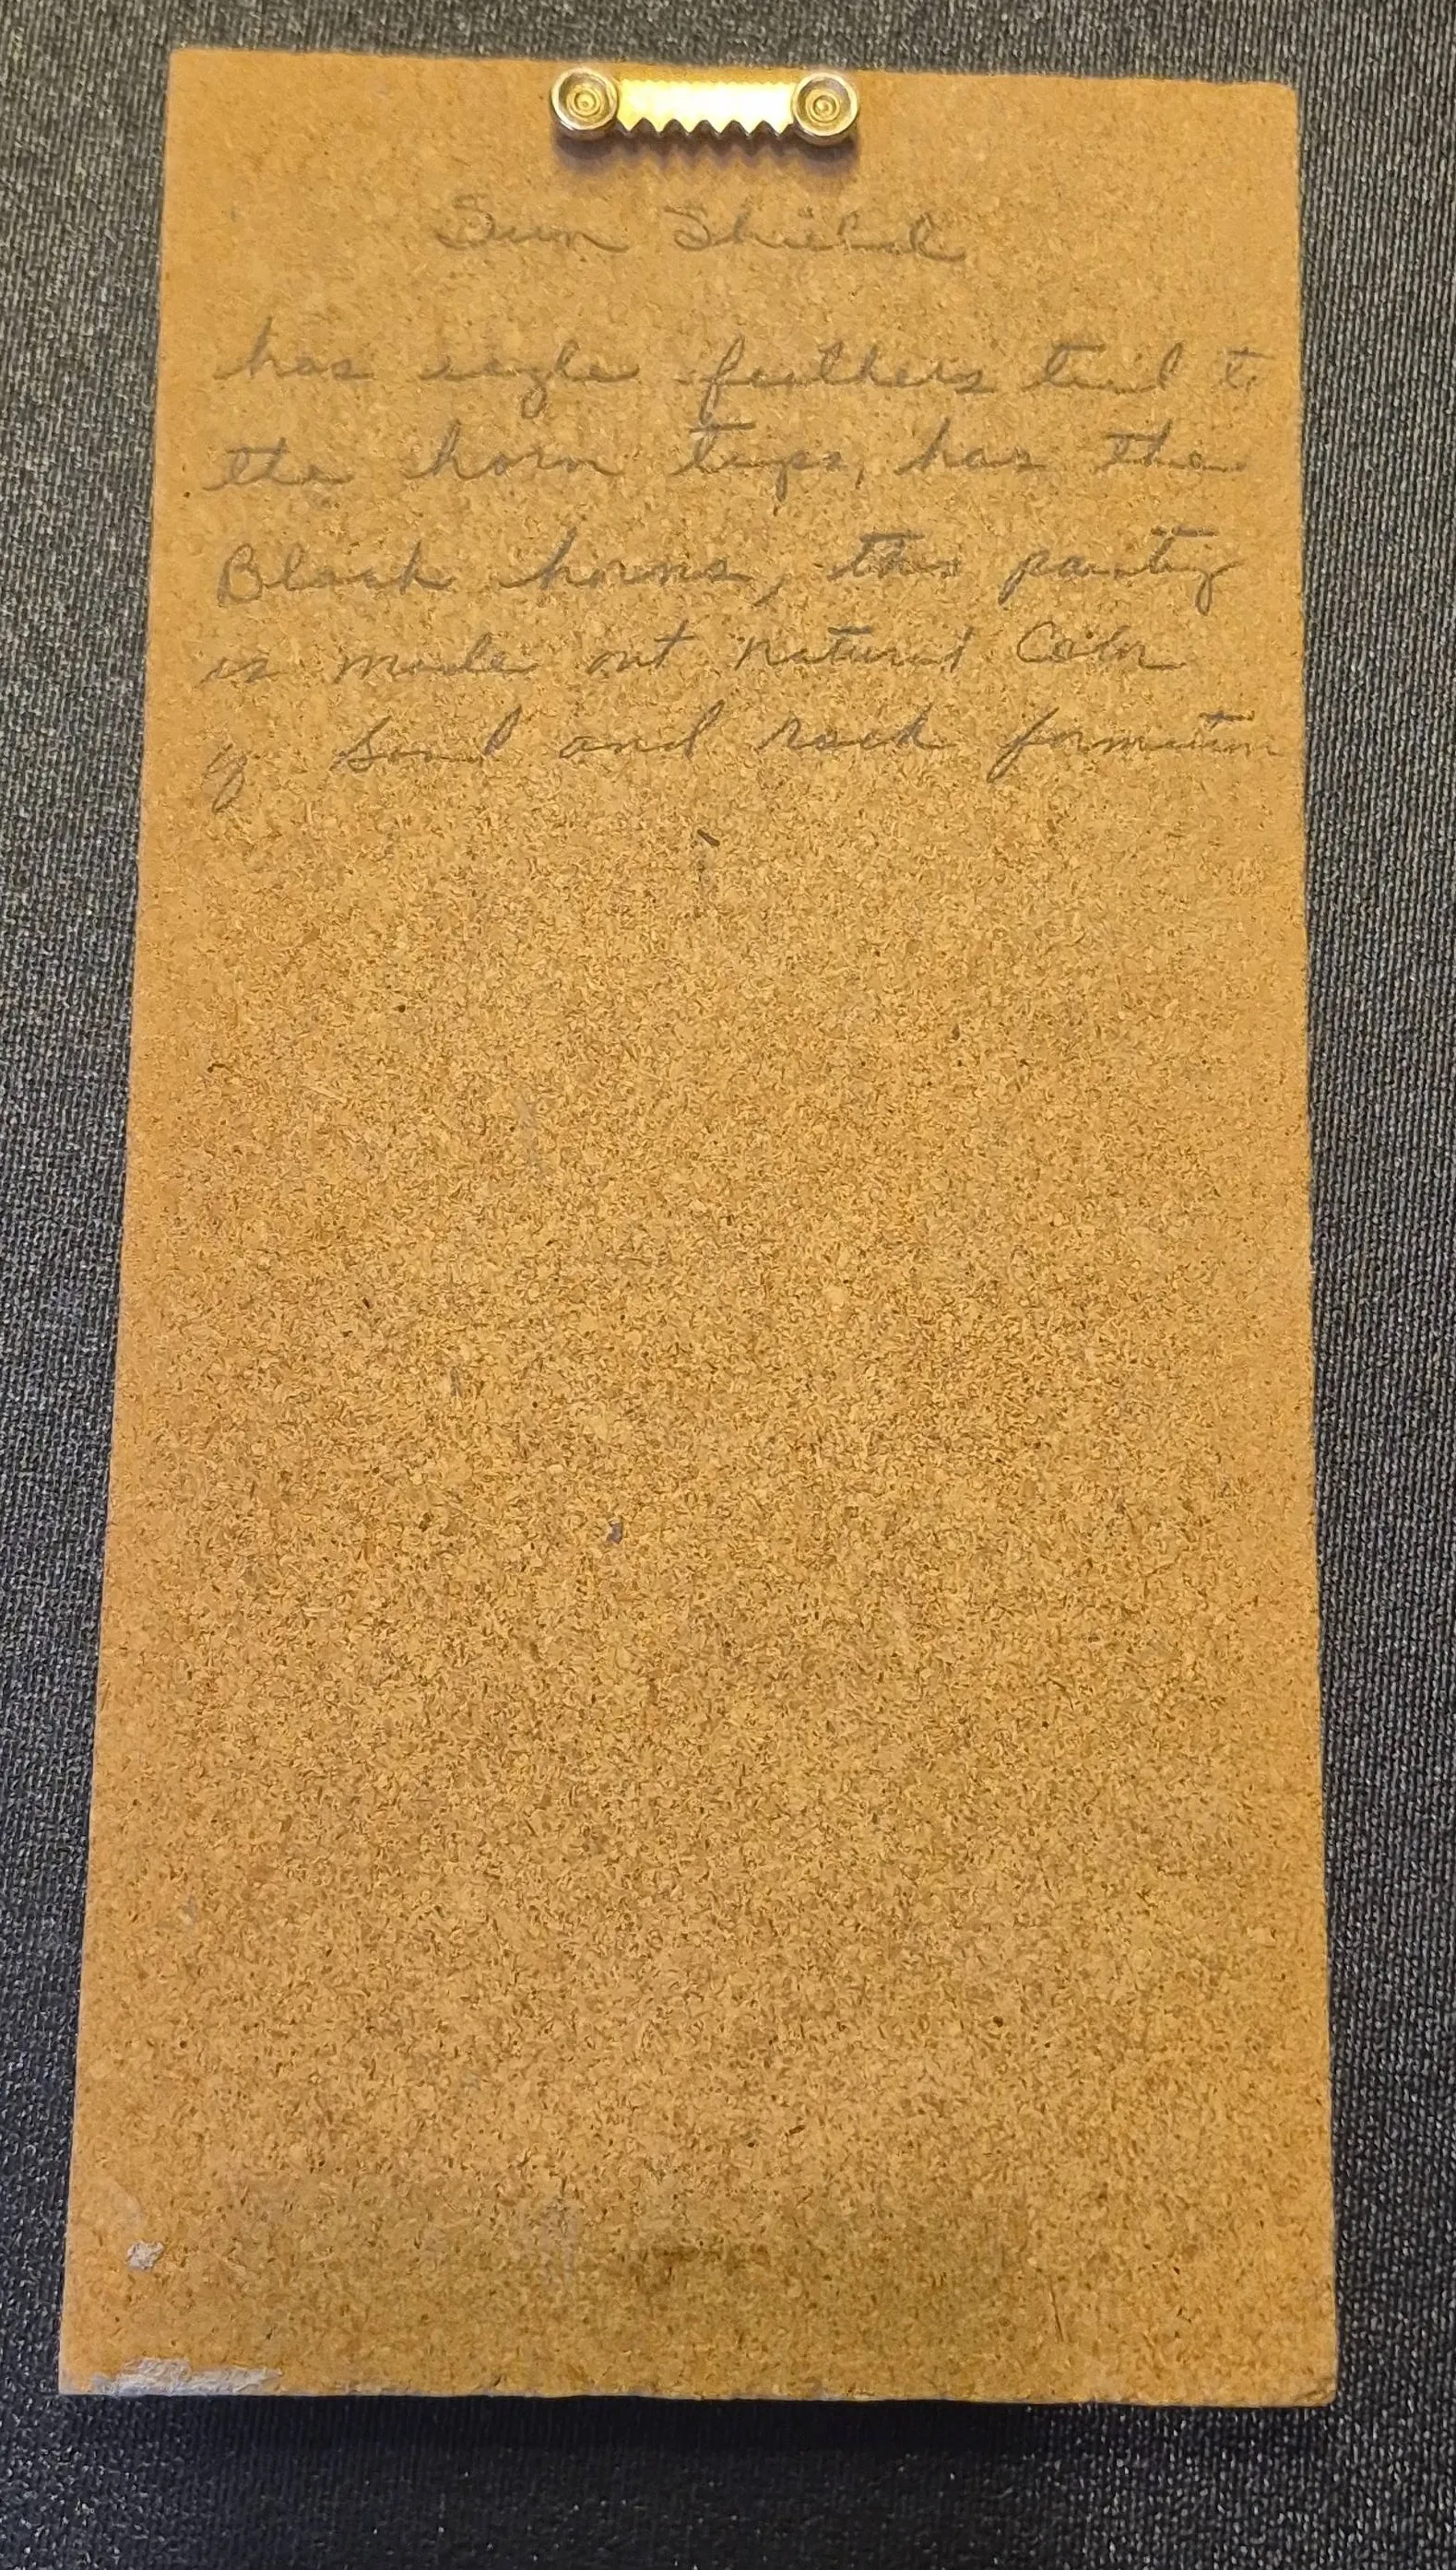 Sun Shield
has eagle feathers tied to
the horn tips, has the
Black horns, this painting
is made out natural Color
of sand and rock formation